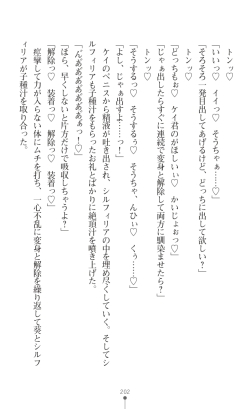 トンッ♡
「いいっ♡　イイっ♡　そうちゃぁ……♡」
「そろそろ一発目出してあげるけど、どっちに出して欲しい？」
トンッ♡
「どっちもぉ♡　ケイ君のがほしいぃ♡　かいじょぉっ♡」
「じゃぁ出したらすぐに連続で変身と解除して両方に馴染ませたら？」
トンッ♡
「そうするっ♡　そうするぅ♡　そうちゃ、んひぃ♡　くぅ……♡」
「よし、じゃぁ出すよ……っ！」
「んあああああああぁぁっ！」
ケイのペニスから精液が吐き出され、シルフィリアの中を埋め尽くしていく。そしてシ
ルフィリアも子種汁をもらったお礼とばかりに絶頂汁を噴き上げた。
「ほら、早くしないと片方だけで吸収しちゃうよ？」
「解除っ♡　装着っ♡　解除っ♡　装着っ♡」
痙攣して力が入らない体にムチを打ち、一心不乱に変身と解除を繰り返して葵とシルフ
ィリアが子種汁を取り合った。
202